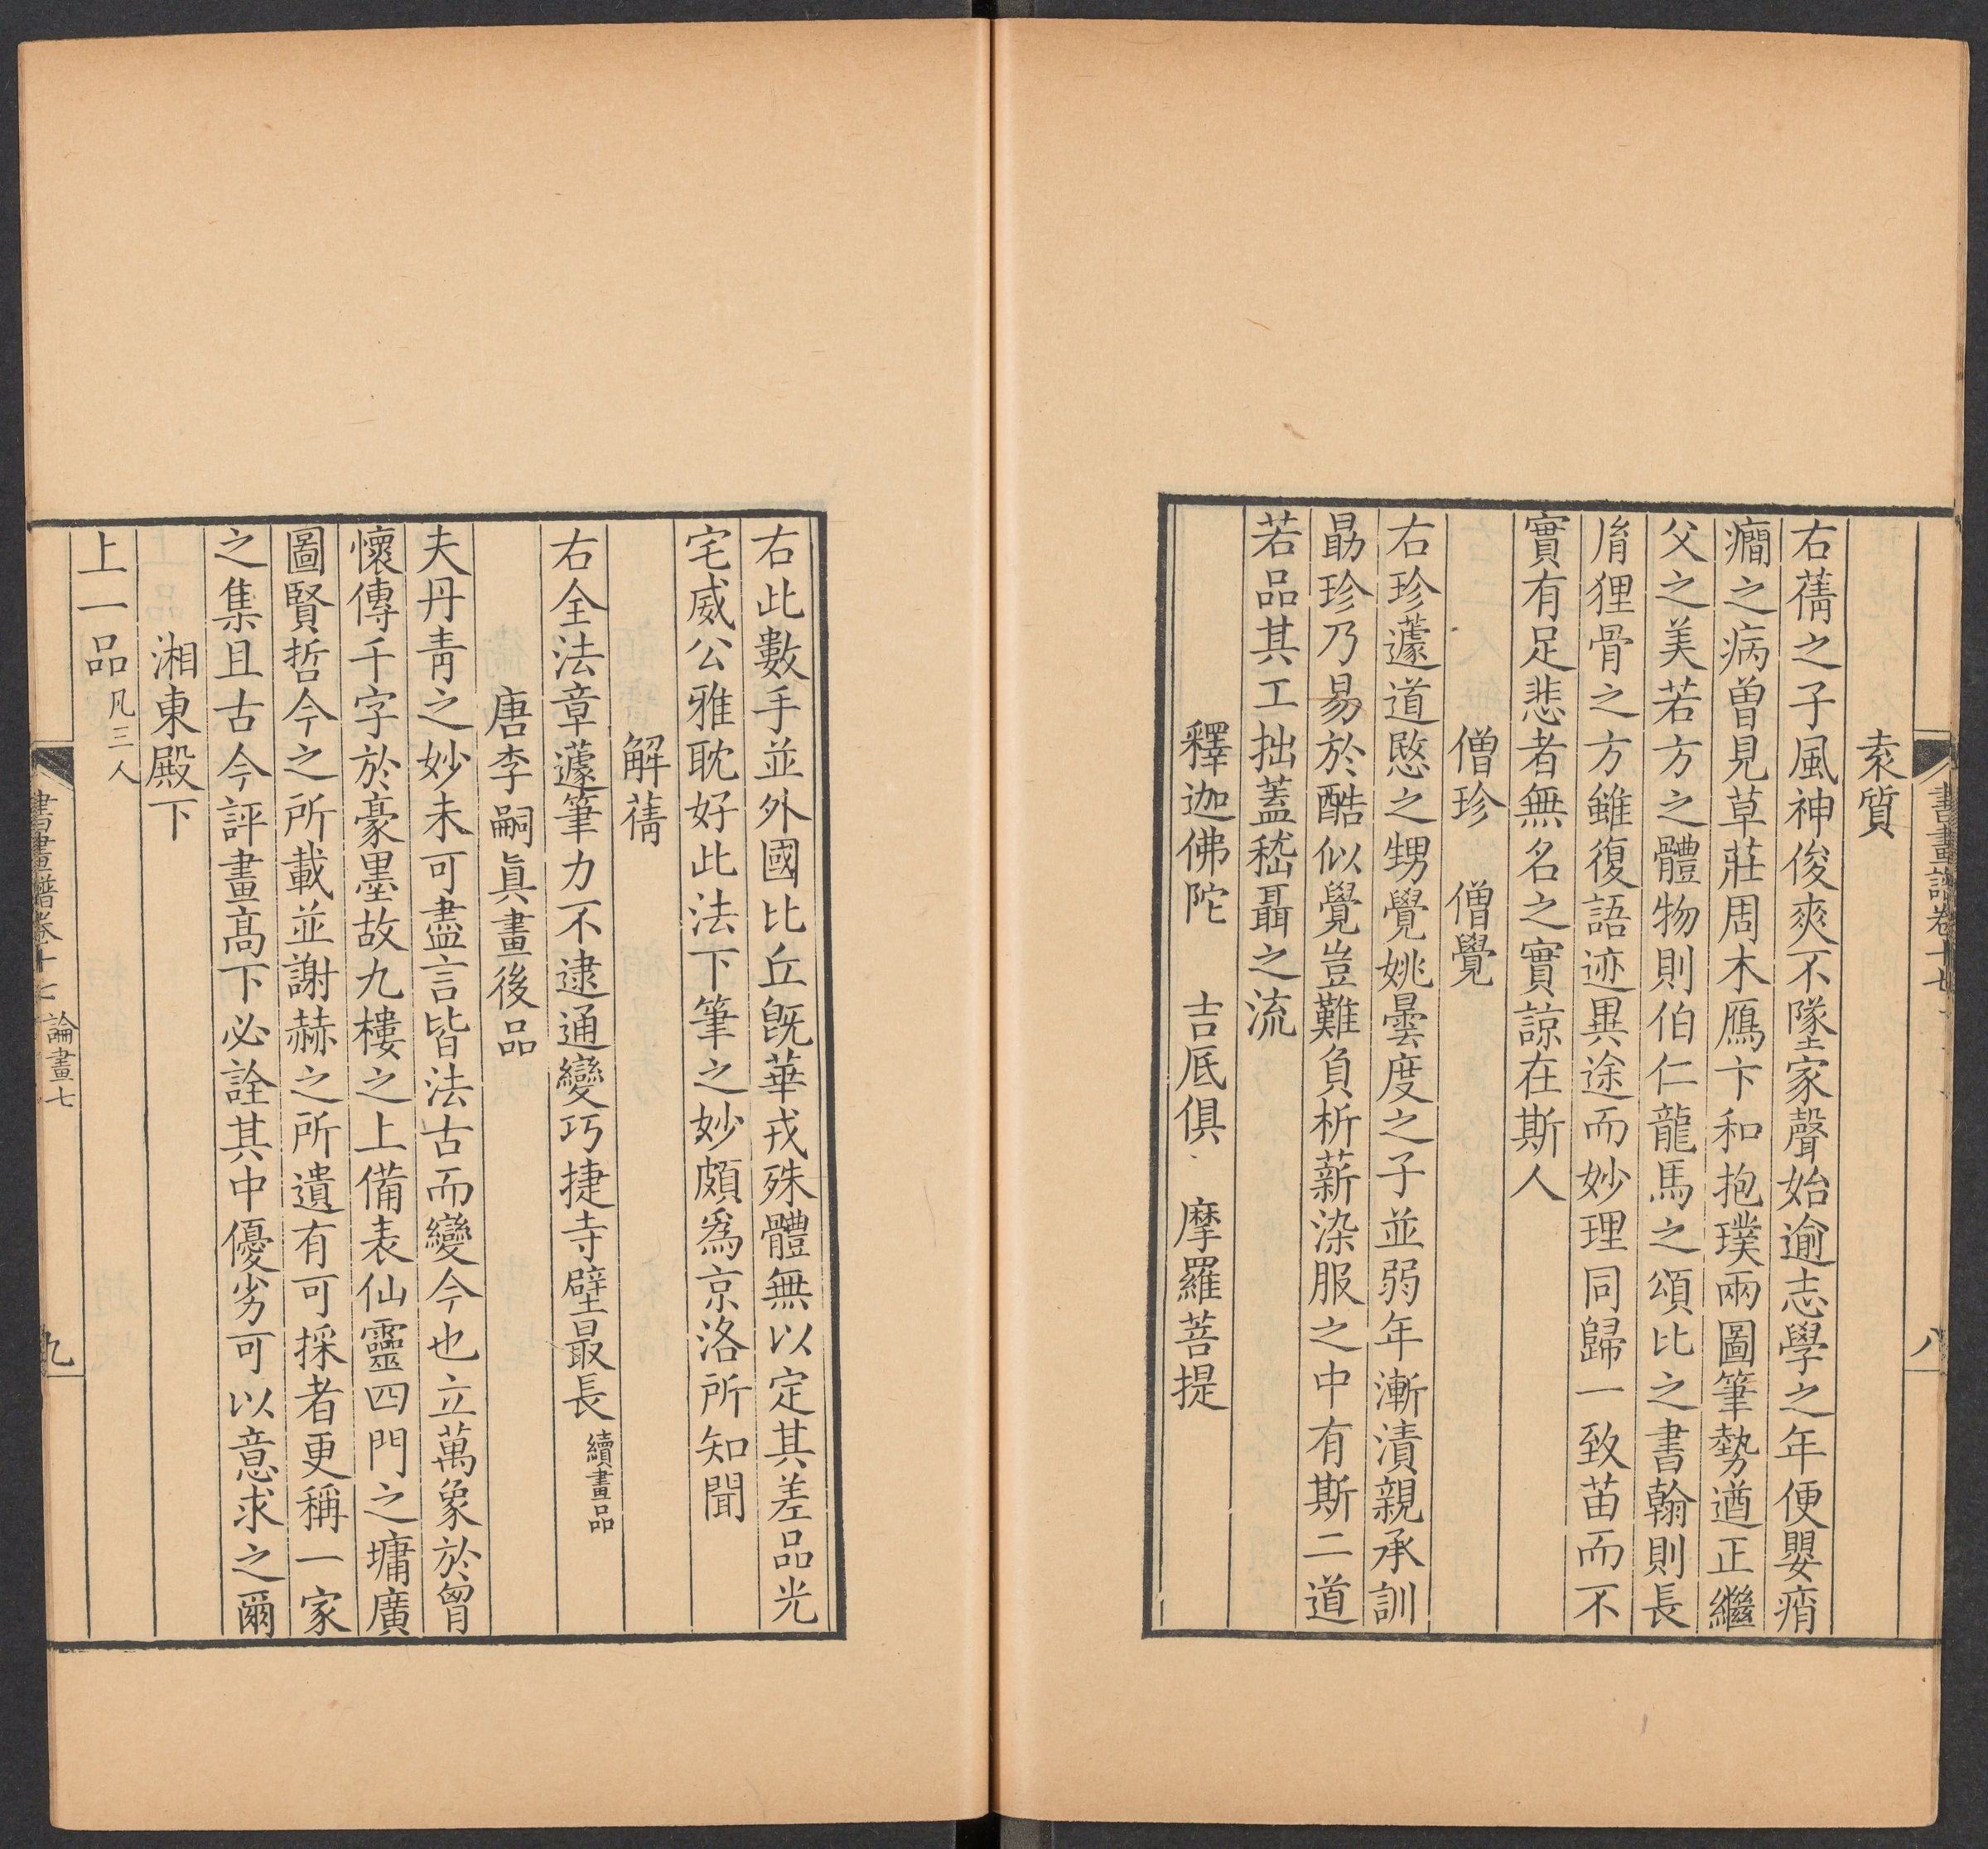 書畫譜卷十七
八
袁質
右蒨之子風神俊爽不墜家聲始逾志學之年便嬰痟
癎之病曾見草莊周木鴈卞和抱璞兩圖筆勢遒正繼
父之美若方之體物則伯仁龍馬之頌比之書翰則長
胤狸骨之方雖復語迹異途而妙理同歸一致苗而不
實有足悲者無名之實諒在斯人
僧珍 僧覺
右珍蘧道愍之甥覺姚曇度之子並弱年漸漬親承訓
勗珍乃易於酷似覺豈難負析薪染服之中有斯二道
若品其工拙蓋嵇聶之流
釋迦佛陀 吉底俱 摩羅菩提
右此數手並外國比丘旣華戎殊體無以定其差品光
宅威公雅耽好此法下筆之妙頗爲京洛所知聞
解蒨
右全法章蘧筆力不逮通變巧捷寺壁最長 續畫品
唐李嗣眞畫後品
夫丹靑之妙未可盡言皆法古而變今也立萬象於胷
懷傳千字於豪墨故九樓之上備表仙靈四門之墉廣
圖賢哲今之所載並謝赫之所遺有可採者更稱一家
之集且古今評畫高下必詮其中優劣可以意求之爾
湘東殿下
上一品 凡三人
書畫譜卷十七 論畫七
九